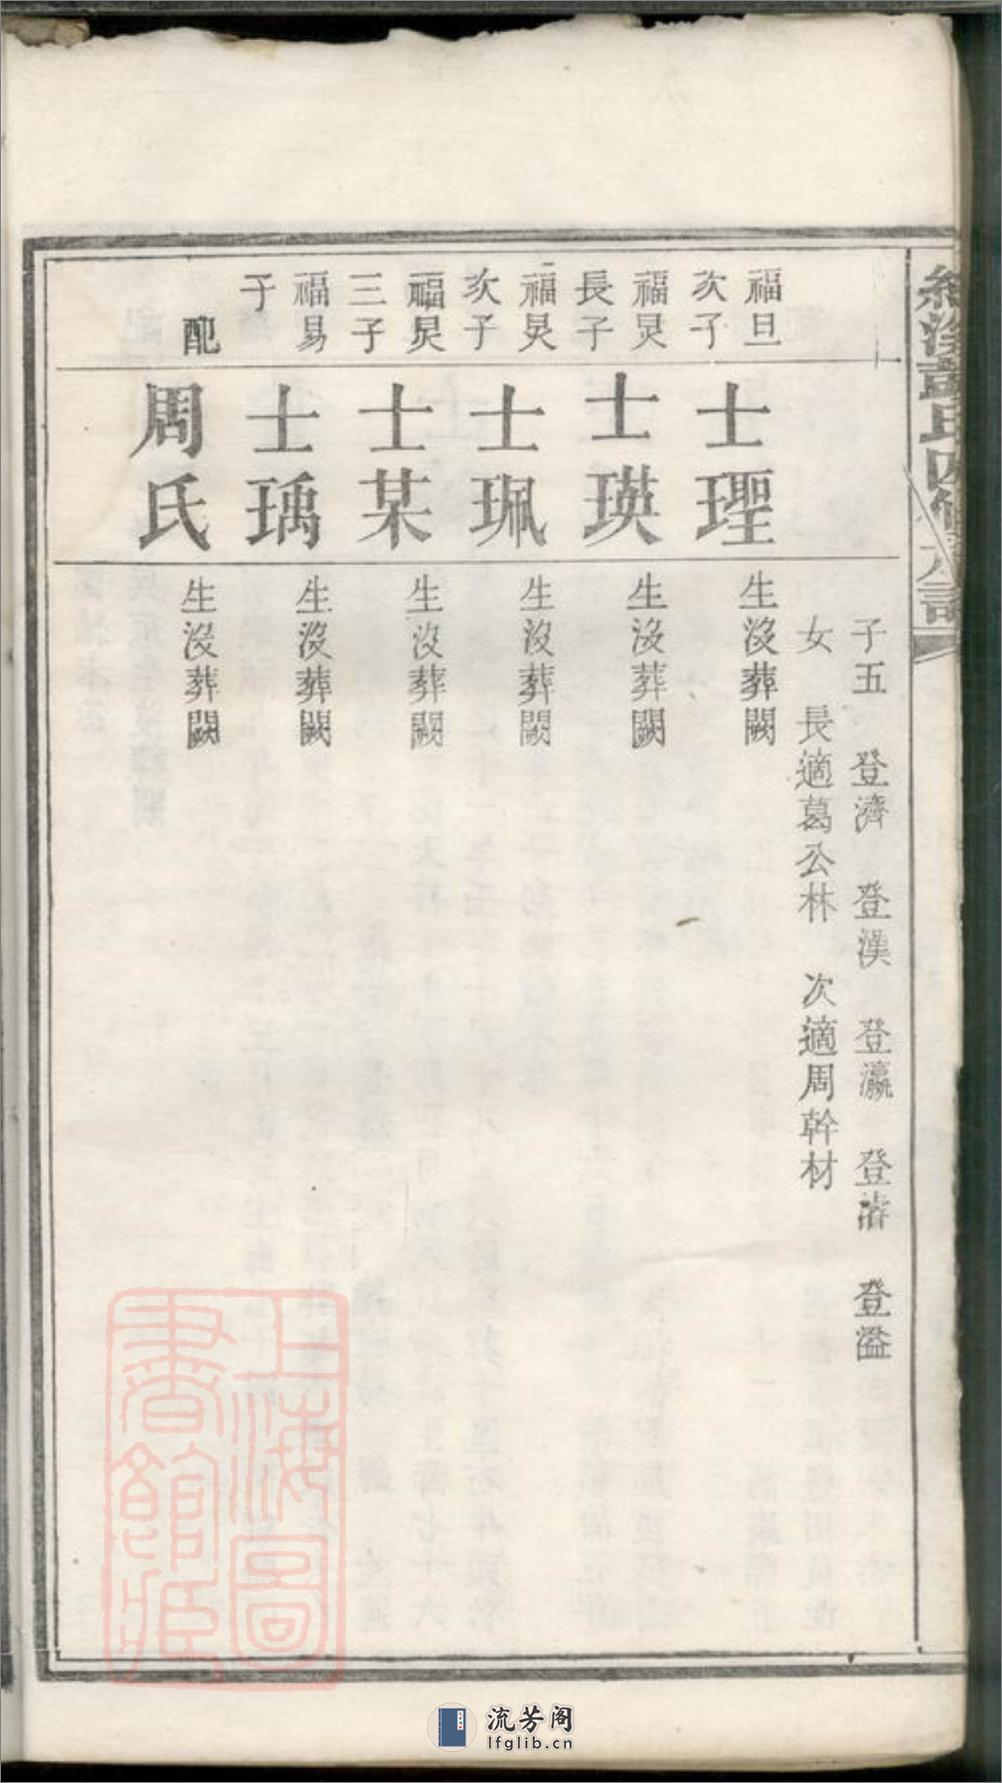 彭氏四修
子五 登濟 登漢 登瀛 登濬 登溢
女 長適葛公林 次適周幹材
福旦次子
士琞
生沒葬闕
福炅長子
士瑛
生沒葬闕
福炅次子
士珮
生沒葬闕
福炅三子
士某
生沒葬闕
福易子
士瑀
生沒葬闕
配
周氏
生沒葬闕
上海圖書館藏
流芳阁
lfglib.cn